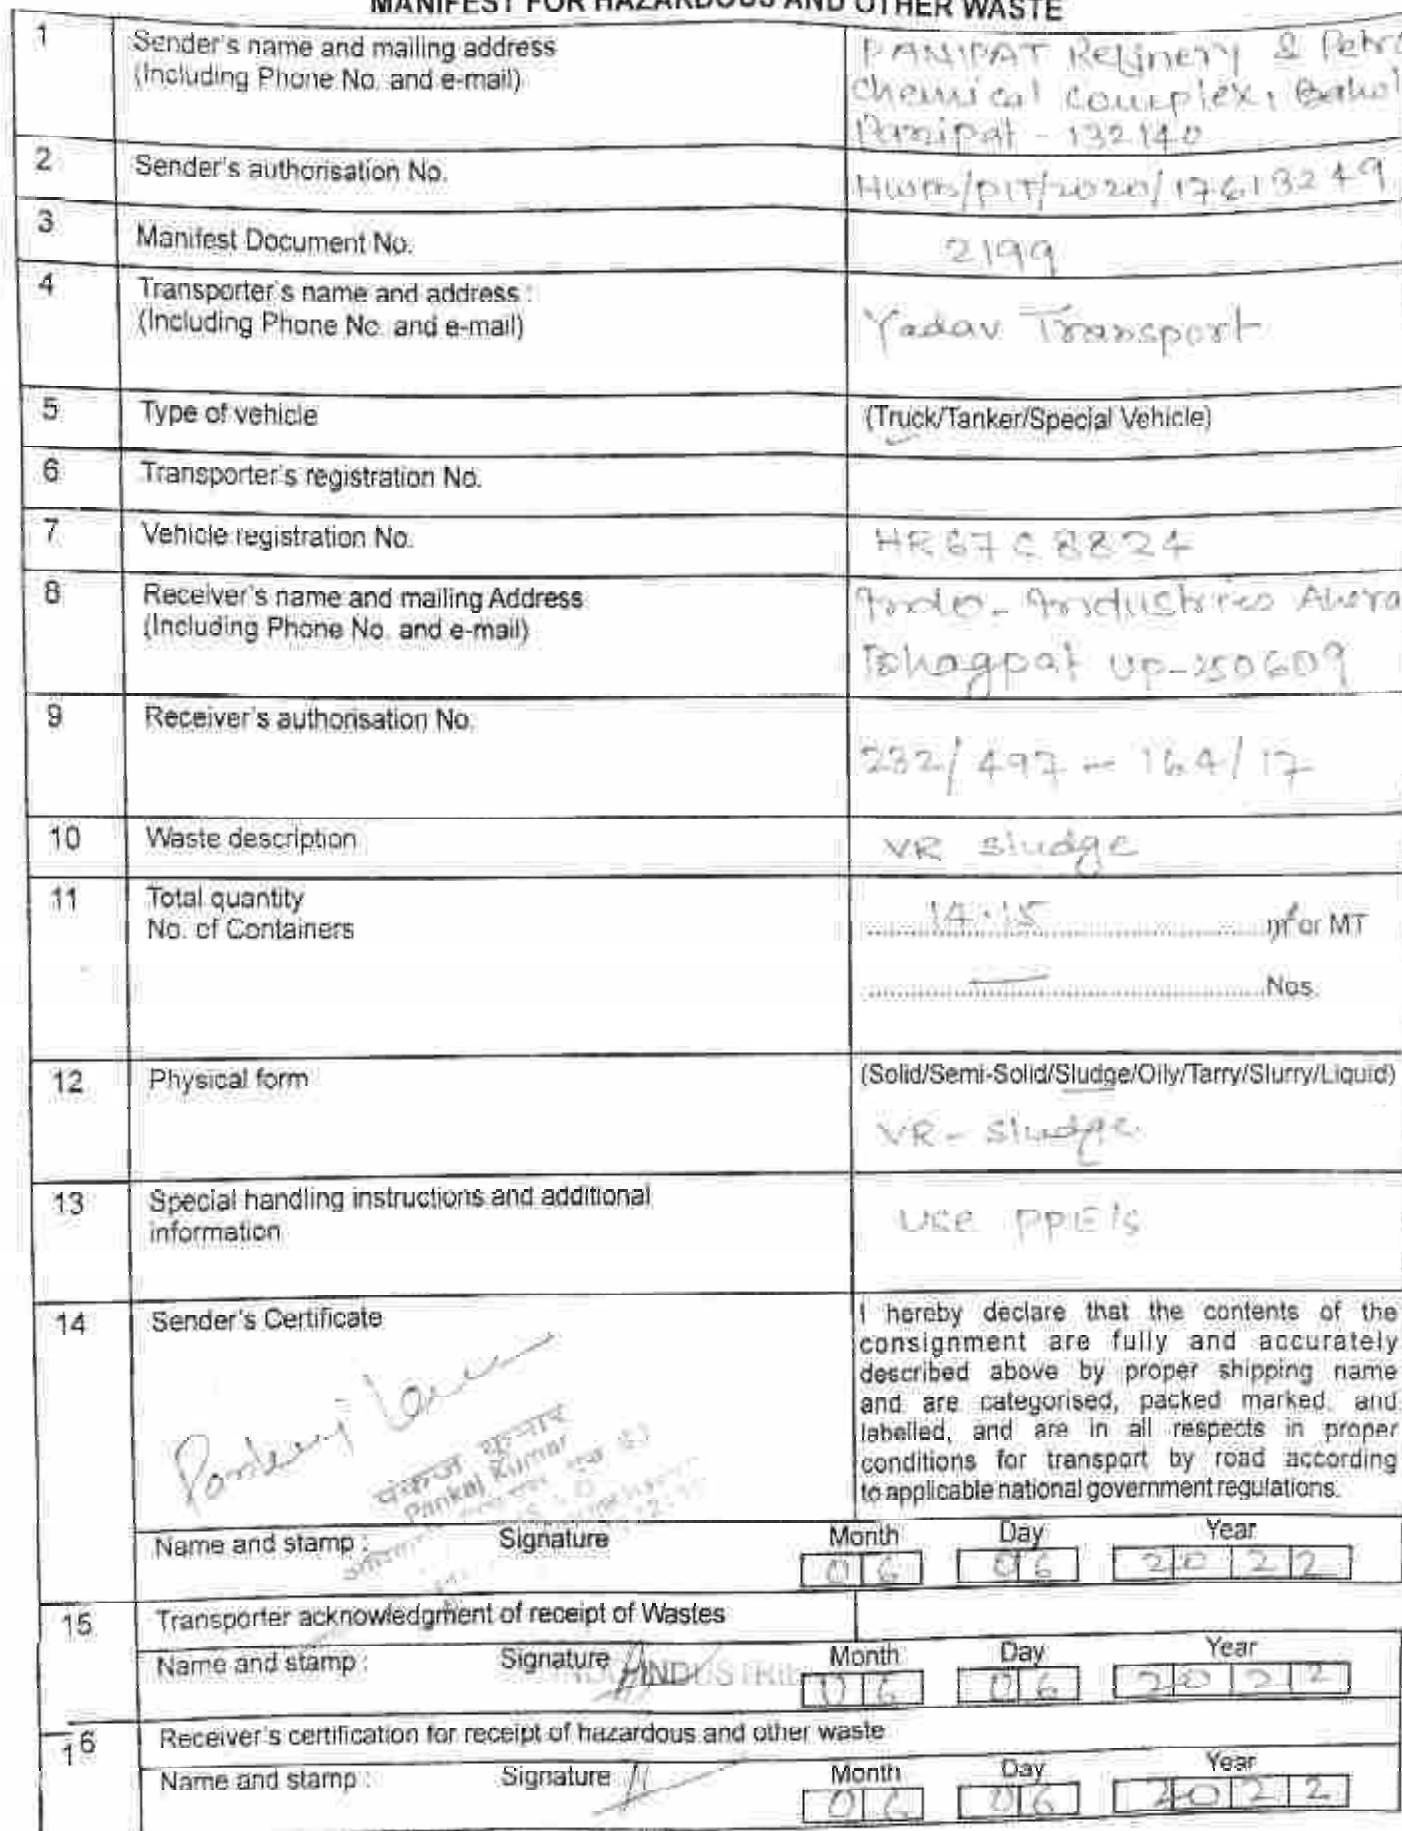 MANIFEST FOR HAZARDOUS AND OTHER WASTE
1 Sender's name and mailing address
(Including Phone No. and e-mail)
PANIPAT Refinery & Petro
chemical complex, Bahol
Panipat - 132140
2 Sender's authorisation No.
/PIT/2020/17613249
3 Manifest Document No.
2199
4 Transporter's name and address :
(Including Phone No. and e-mail)
Yadav Transport
5 Type of vehicle
(Truck/Tanker/Special Vehicle)
6 Transporter's registration No.
7 Vehicle registration No.
HR67C8824
8 Receiver's name and mailing Address
(Including Phone No. and e-mail)
Indo-Industries
Bhagpat UP-250609
9 Receiver's authorisation No.
232/497-164/17
10 Waste description
VR sludge
11 Total quantity
No. of Containers
14.15 m³ or MT
— Nos.
12 Physical form
(Solid/Semi-Solid/Sludge/Oily/Tarry/Slurry/Liquid)
VR-sludge
13 Special handling instructions and additional
information
Use PPE's
14 Sender's Certificate
I hereby declare that the contents of the
consignment are fully and accurately
described above by proper shipping name
and are categorised, packed marked, and
labelled, and are in all respects in proper
conditions for transport by road according
to applicable national government regulations.
Pankaj Kumar
पंकज कुमार
Pankaj Kumar
Name and stamp : Signature Month Day Year
06 06 2022
15 Transporter acknowledgment of receipt of Wastes
Name and stamp : Signature Month Day Year
INDUSTRIE
06 06 2022
16 Receiver's certification for receipt of hazardous and other waste
Name and stamp : Signature Month Day Year
06 06 2022